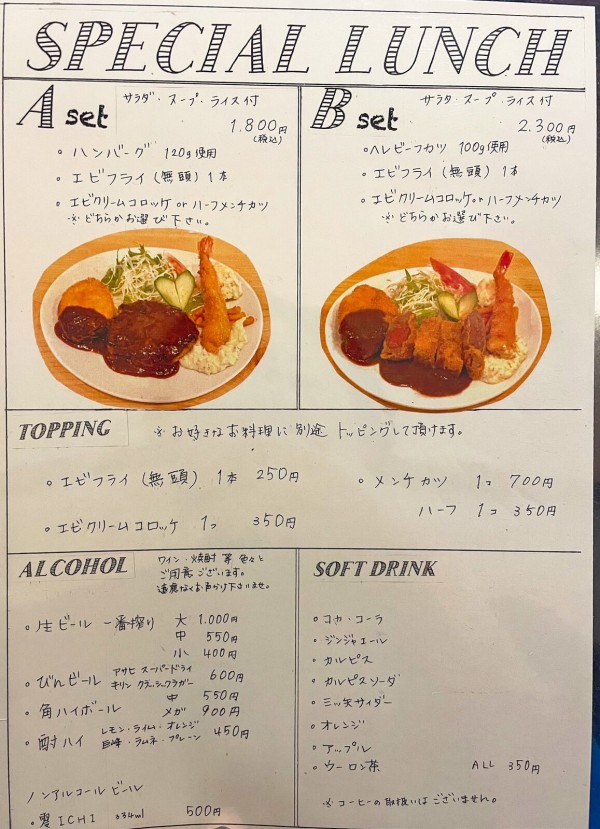 SPECIAL LUNCH
A set
サラダ・スープ・ライス付
1.800円
(税込)
・ハンバーグ 120g使用
・エビフライ(無頭) 1本
・エビクリームコロッケ or ハーフメンチカツ
※どちらかお選び下さい。
B set
サラダ・スープ・ライス付
2.300円
(税込)
・ヘレビーフカツ 100g使用
・エビフライ(無頭) 1本
・エビクリームコロッケor ハーフメンチカツ
※どちらかお選び下さい。
TOPPING
※お好きなお料理に別途 トッピングして頂けます。
・エビフライ(無頭) 1本 250円
・エビクリームコロッケ 1コ 350円
・メンチカツ 1コ 700円
ハーフ 1コ 350円
ALCOHOL
ワイン・焼酎 等 色々と
ご用意ございます。
遠慮なくお声かけ下さいませ。
・生ビール 一番搾り 大 1.000円
中 550円
小 400円
・びんビール アサヒ スーパードライ
キリン クラッシックラガー 600円
・角ハイボール 中 550円
メガ 900円
・酎ハイ レモン・ライム・オレンジ
巨峰・ラムネ・プレーン 450円
ノンアルコールビール
・零ICHI 334ml 500円
SOFT DRINK
・コカ・コーラ
・ジンジャエール
・カルピス
・カルピスソーダ
・三ッ矢サイダー
・オレンジ
・アップル
・ウーロン茶 ALL 350円
※コーヒーの取扱いはございません。